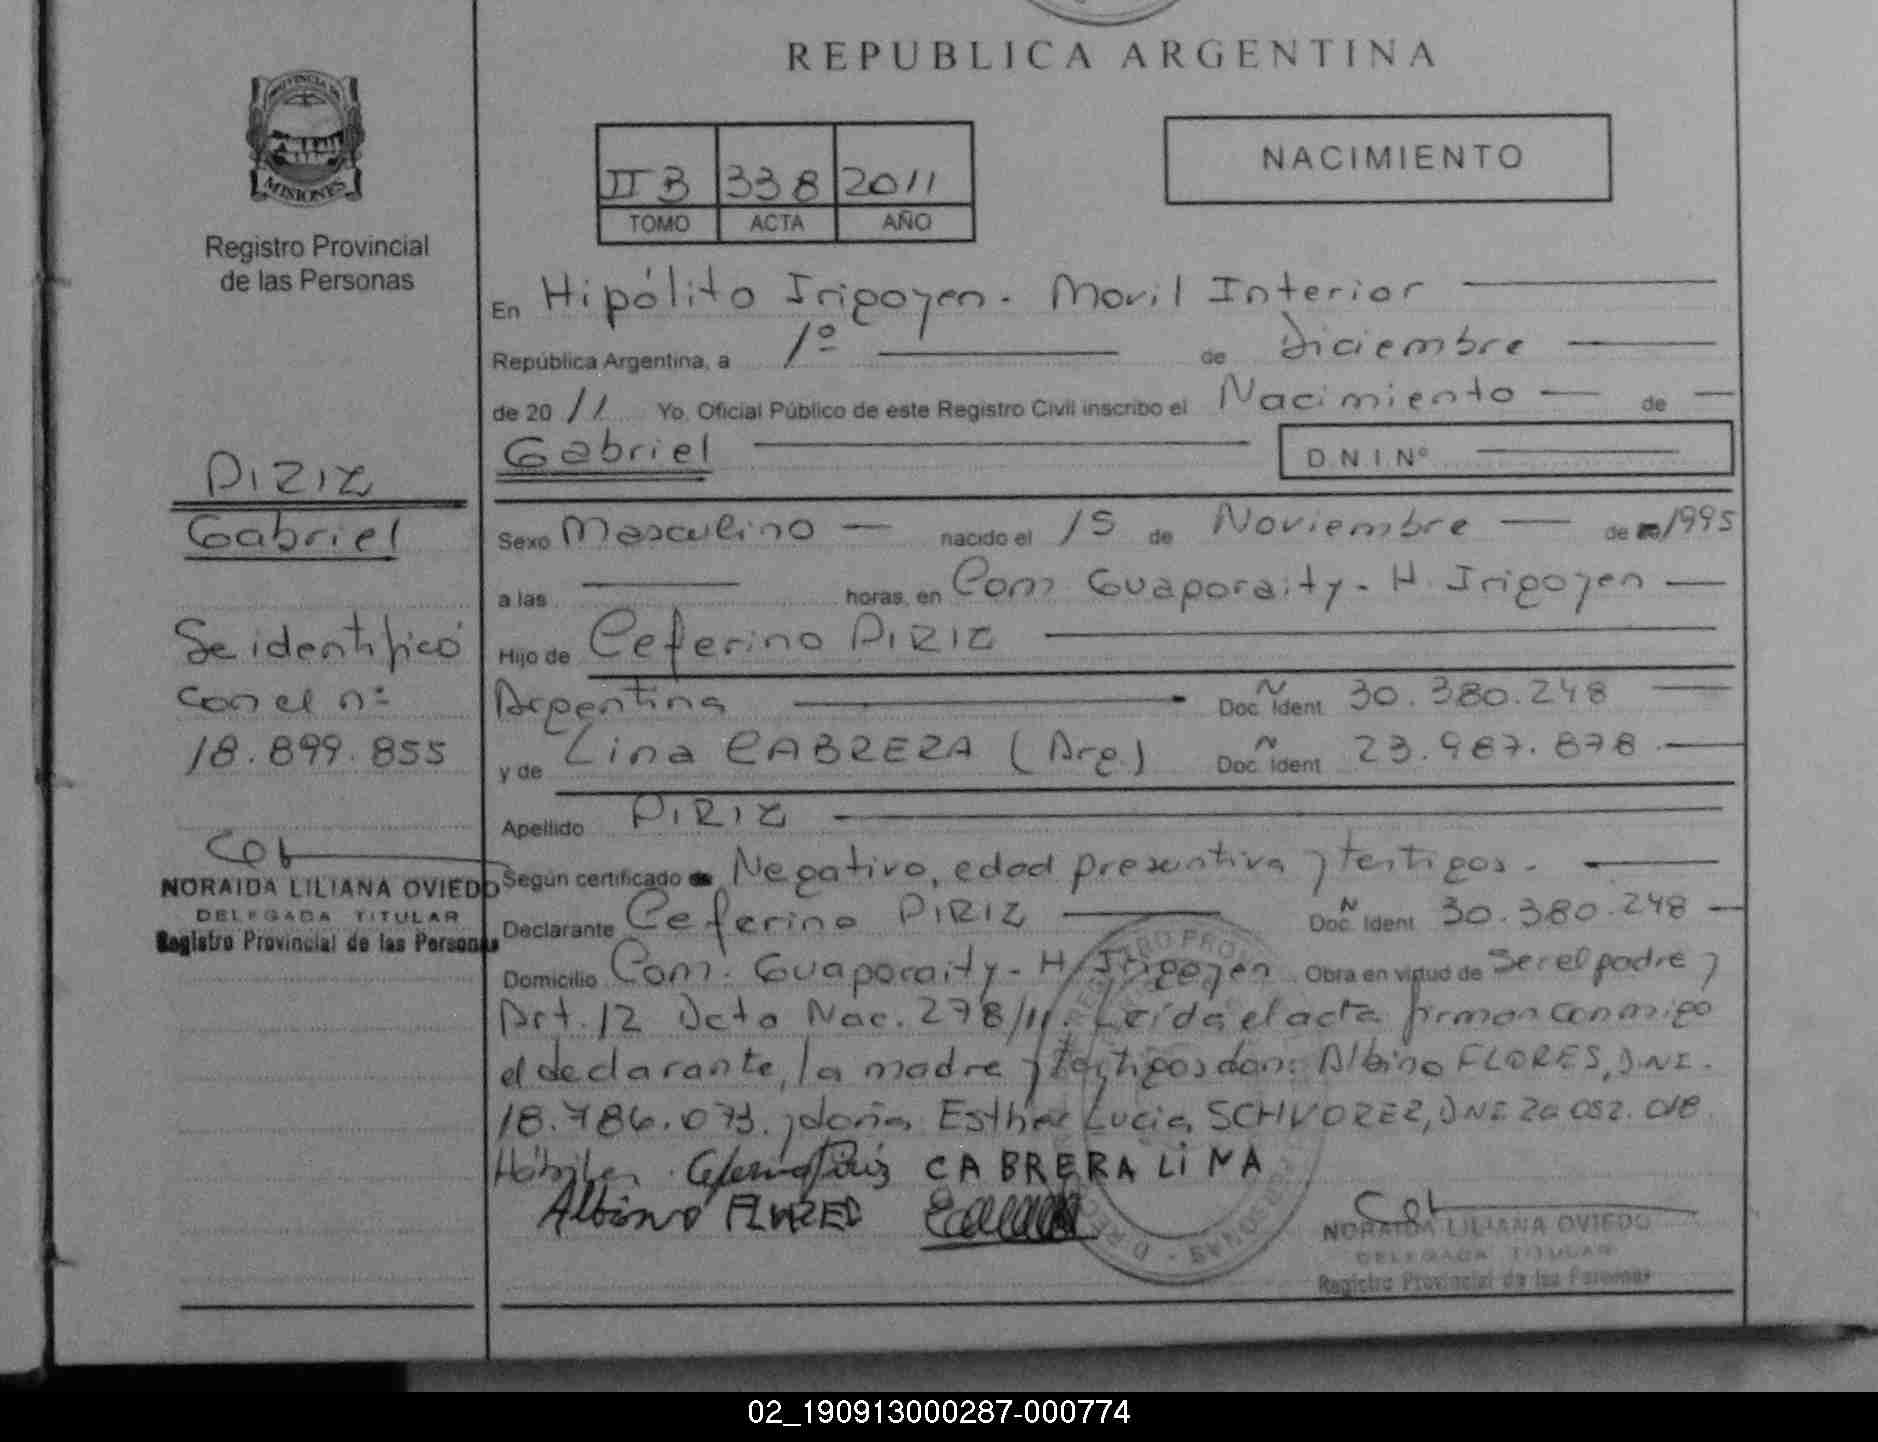 REPUBLICA ARGENTINA
MISIONES
Registro Provincial
de las Personas
II B 338 2011
TOMO ACTA AÑO
NACIMIENTO
En Hipólito Irigoyen - Movil Interior
República Argentina, a 1º de Diciembre
de 2011 Yo, Oficial Público de este Registro Civil inscribo el Nacimiento de
Gabriel D.N.I. Nº
PIRIZ
Gabriel
Se identificó
con el nº
18.899.855
NORAIDA LILIANA OVIEDO
DELEGADA TITULAR
Registro Provincial de las Personas
Sexo Masculino nacido el 15 de Noviembre de 1995
a las horas, en Com. Guaporaity - H. Irigoyen
Hijo de Ceferino PIRIZ
Argentina Doc. Ident. 30.380.248
y de Lina CABRERA (Arg.) Doc. Ident. 23.987.878
Apellido PIRIZ
Según certificado Negativo, edad presuntiva y testigos.
Declarante Ceferino PIRIZ Doc. Ident. 30.380.248
Domicilio Com. Guaporaity - H. Irigoyen Obra en virtud de Ser el padre y
Art. 12 Dcto Nac. 278/11. Leída el acta firman conmigo
el declarante, la madre y testigos don: Albino FLORES, DNI.
18.786.073. y doña Esther Lucia SCHVOREZ, DNI 20.052.018
Hábiles. CABRERA LiNA
Albino FLORES
NORAIDA LILIANA OVIEDO
DELEGADA TITULAR
Registro Provincial de las Personas
02_190913000287-000774